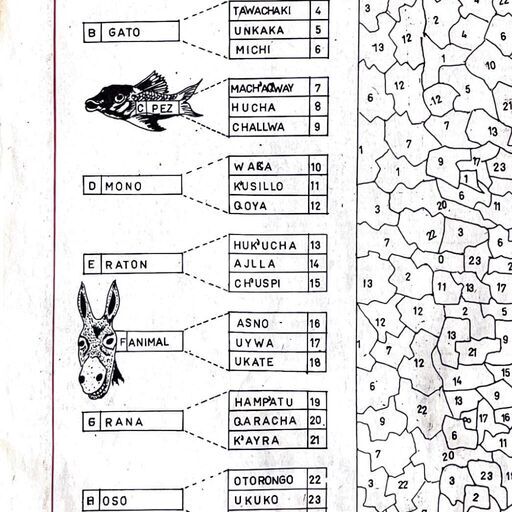 B GATO
TAWACHAKI 4
UNKAKA 5
MICHI 6
C PEZ
MACH'AQWAY 7
HUCHA 8
CHALLWA 9
D MONO
WAKA 10
K'USILLO 11
QOYA 12
E RATON
HUK'UCHA 13
AJLLA 14
CH'USPI 15
F ANIMAL
ASNO 16
UYWA 17
UKATE 18
G RANA
HAMP'ATU 19
QARACHA 20
K'AYRA 21
H OSO
OTORONGO 22
UKUKO 23
3 2
12 12
13
1 10
12 5
6 12
7 13
7
9 17 23
1 1
6
3 20
7 22 3
0 23
13 2
11 13 17
2 5
1 7 13
12 21
6 14 15
22 13 17 16
1 6
7 20
12 3 23